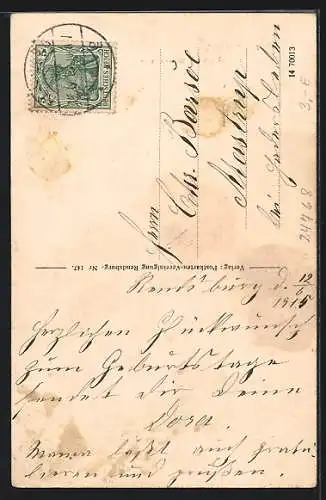 14 70013
3,- E
24768
Herrn
Chr.
Mastrup
bei Hadersleben
Verlag: Postkarten-Vereinigung Rendsburg. Nr. 147.
Rendsburg d. 12/6 1915
Herzlichen Glückwunsch
zum Geburtstage
sendet dir Deine
Dora.
Mama läßt auch gratu-
lieren und grüßen.